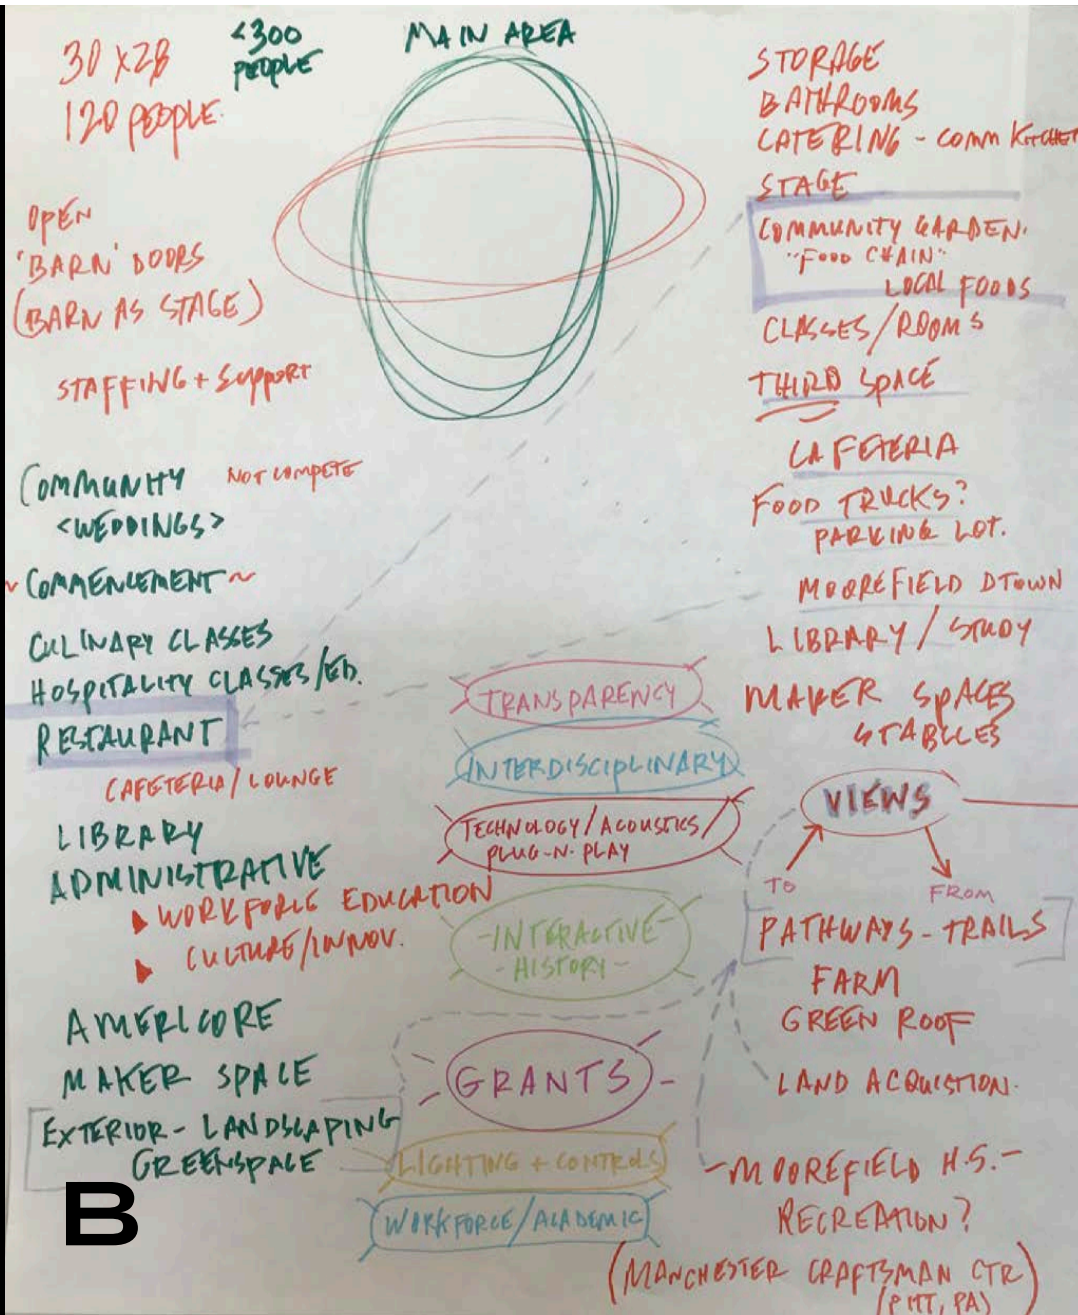 30 X 28
120 PEOPLE.
<300
PEOPLE
MAIN AREA
OPEN
'BARN' DOORS
(BARN AS STAGE)
STAFFING + SUPPORT
COMMUNITY NOT COMPETE
<WEDDINGS>
~ COMMENCEMENT ~
CULINARY CLASSES
HOSPITALITY CLASSES/ED.
RESTAURANT
CAFETERIA/LOUNGE
LIBRARY
ADMINISTRATIVE
WORKFORCE EDUCATION
CULTURE/INNOV.
AMERICORE
MAKER SPACE
EXTERIOR - LANDSCAPING
GREENSPACE
B
TRANSPARENCY
INTERDISCIPLINARY
TECHNOLOGY/ACOUSTICS/
PLUG-N-PLAY
-INTERACTIVE-
-HISTORY-
GRANTS
LIGHTING + CONTROLS
WORKFORCE/ACADEMIC
STORAGE
BATHROOMS
CATERING - COMM KITCHEN
STAGE
COMMUNITY GARDEN.
"FOOD CHAIN"
LOCAL FOODS
CLASSES/ROOMS
THIRD SPACE
CAFETERIA
FOOD TRUCKS?
PARKING LOT.
MOOREFIELD DTOWN
LIBRARY/STUDY
MAKER SPACES
STABLES
VIEWS
TO
FROM
PATHWAYS - TRAILS
FARM
GREEN ROOF
LAND ACQUISTION.
-MOOREFIELD H.S.-
RECREATION?
(MANCHESTER CRAFTSMAN CTR)
(PITT, PA)